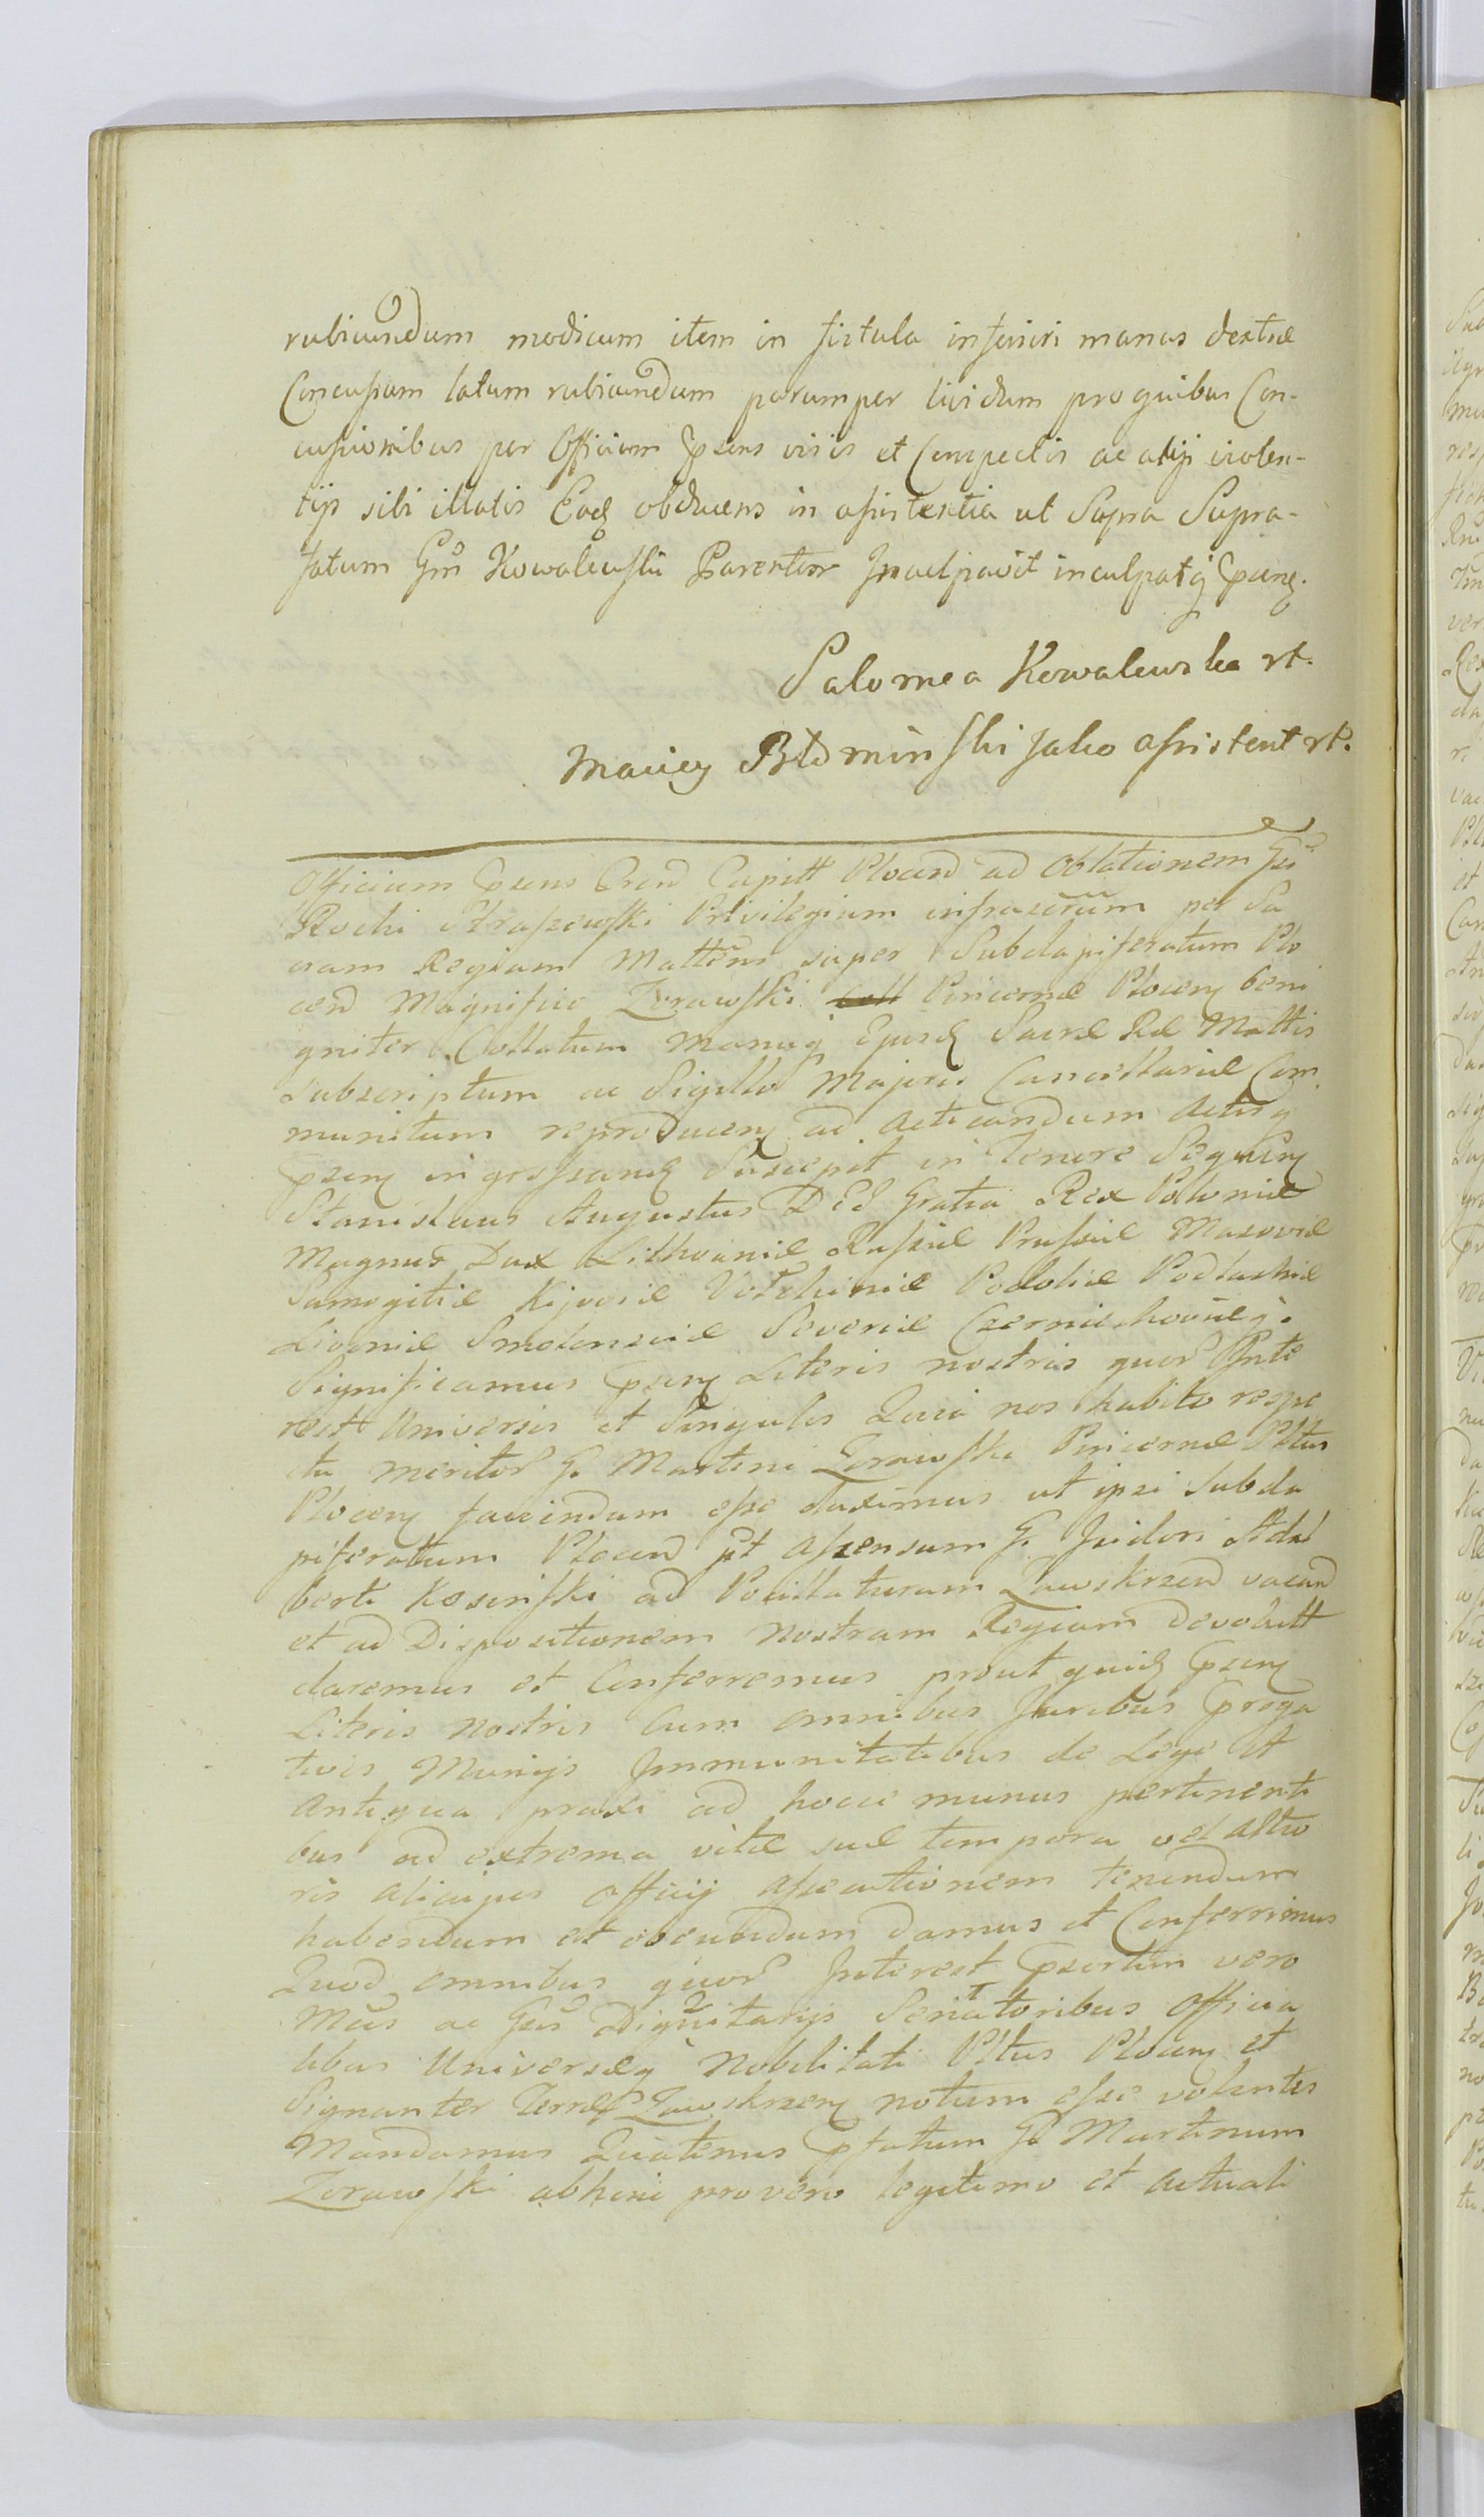 rubicundum modicum item in fistula inferiri manus dextræ
Concusium latum rubicundum parumper lividum pro quibus Con-
cusionibus per Officium Præsens visis et Conspectis ac alijs violen-
tijs sibi illatis Eadē obducens in assistentia ut Supra Supra-
fatum Gm̄ Kowalewski Parentem Inculpavit inculpatq̨ præns.
Salomea Kowalewska rt.
Maciey Błdminski jako assistent rt.
Officium Præsens Crend Capitt Plocen ad Oblationem Gsi
Rochi Straszewski Privilegium infrascrūm per Sa
cram Regiam Mattēm super Subdapiferatum Plo
cen Magnifico Zorawski Pincernæ Plocen beni
gniter Collatum manuq̨ Ejusd Sacræ Ræ Mattis
Subscriptum ac Sigillo Majoris Cancellariæ Com
munitum reproducen ad Acticandum Actisq̨
præsen ingrossand Suscepit in Tenore Sequen
Stanislaus Augustus Dei Gratia Rex Poloniæ
Magnus Dux Lithvaniæ Russiæ Prussiæ Masoviæ
Samogitiæ Kijoviæ Volchiniæ Podoliæ Podlachiæ
Livoniæ Smolensciæ Severiæ Czernichoviæq̨.
Significamus præsen Literis nostris quor̄ Inte
rest Universis et Singulis Quia nos habito respe
ctu meritor̄ G. Martini Zorawski Pincernæ Pltus
Plocen faciendum esse duximus ut ipsi Subda
piferatum Plocen pt Assensum G. Isidori Adal
berti Kosinski ad Pocillaturam Zawskrzen vacan
et ad Dispositionem Nostram Regiam devolutt
daremus et Conferremus prout quid præsen
Literis Nostris Cum omnibus Juribus præroga
tivis Munijs Immunitatibus de Lege et
Antiqua praxi ad hocce munus pertinenti
bus ad extrema vitæ suæ tempora vel altio
ris alicujus officij Assecutionem tenendum
habendum et obeundum damus et Conferrimus
Quod omnibus quor̄ Interest præsertim vero
Mcis ac Gsis Dignitarijs Senatoribus Officia
libus Universæq̨ Nobilitati Pltus Plocen et
Signanter Terræ Zawskrzen notum esse volentes
Mandamus Quatenus præfatum G. Martinum
Zorawski abhinc pro vero legitimo et Actuali